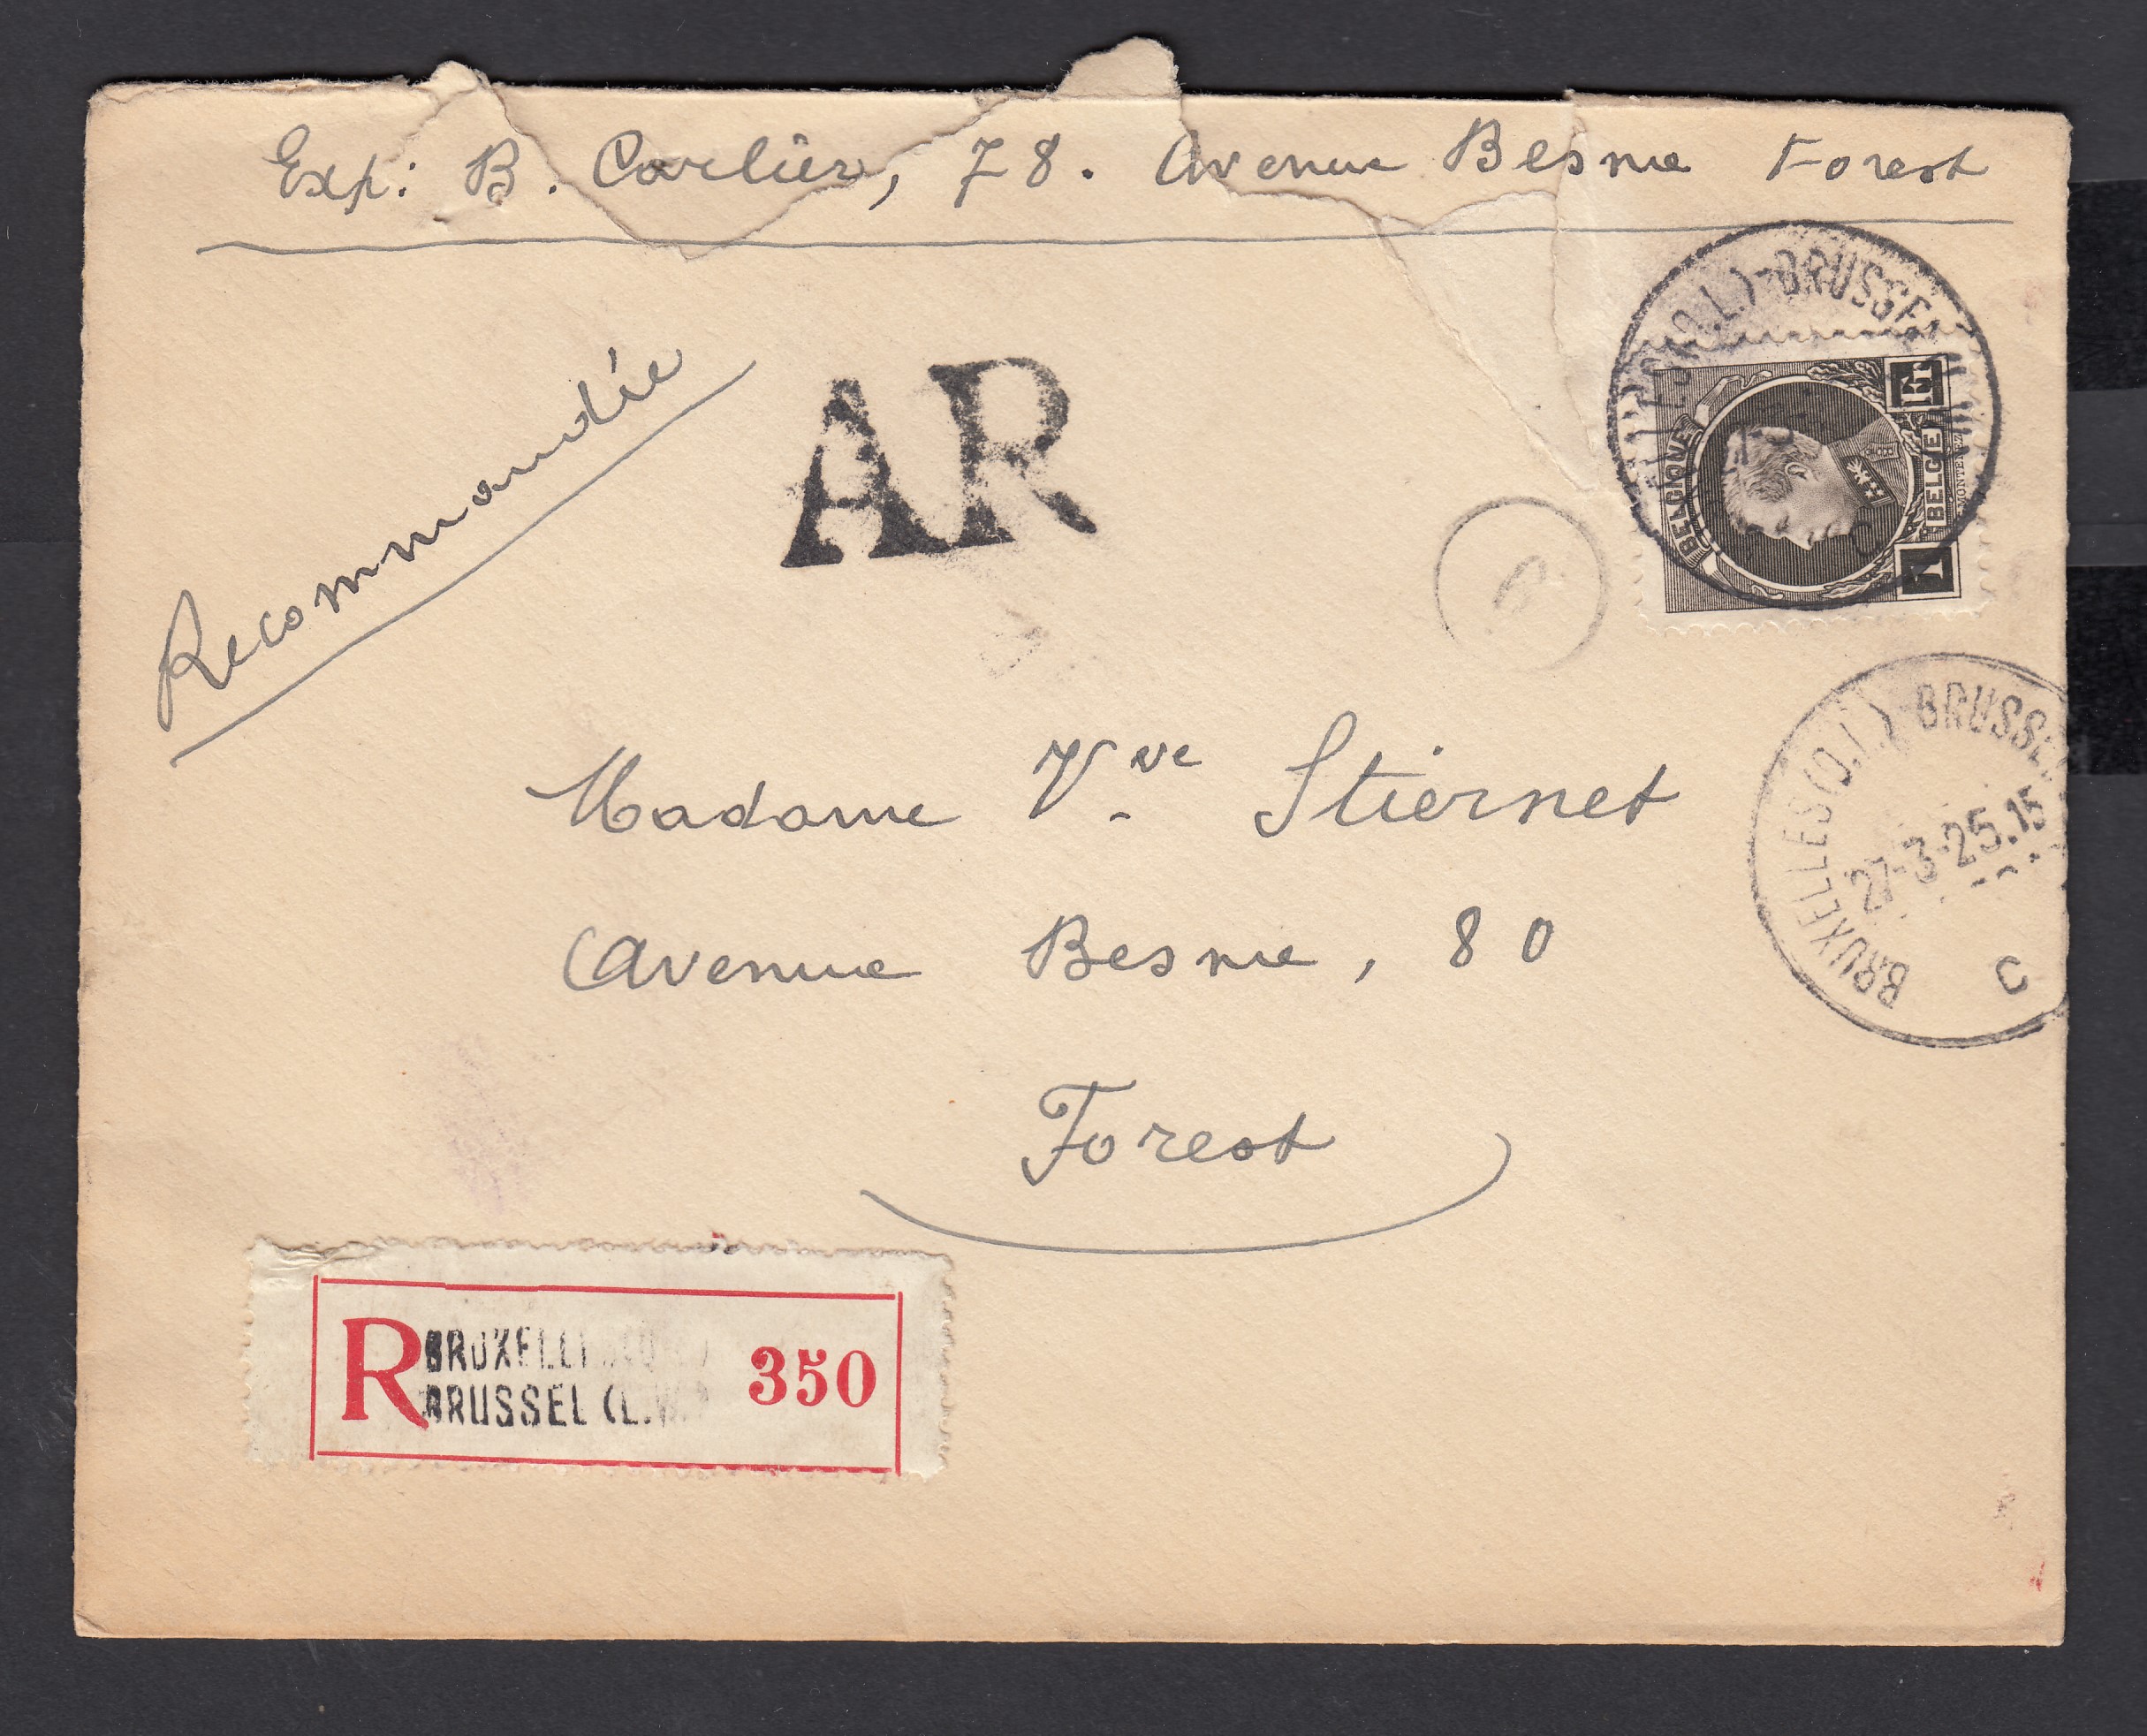 Exp: B. Carlier, 78. Avenue Besme Forest
Recommandée
AR
BELGIQUE
1 Fr
BELGIË
BRUSSEL
Madame Vve Stiernet
BRUXELLES (Q.L.) - BRUSSEL
27-3-25.15
C
Avenue Besme, 80
Forest
R BRUXELLES
BRUSSEL (L.W.) 350